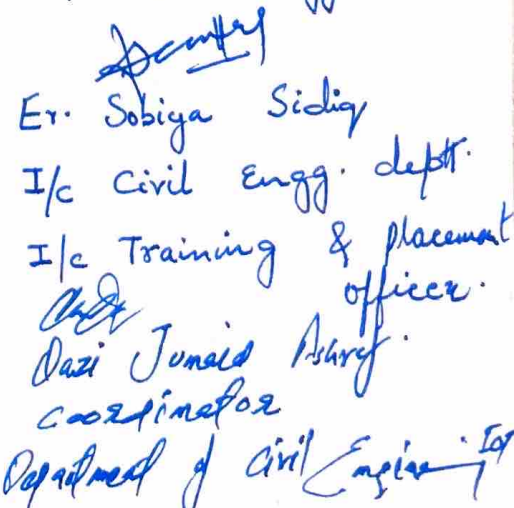 Er. Sobiya Sidiq
I/c Civil Engg. deptt.
I/c Training & placement
officer.
Qazi Junaid Ashraf.
Coordinator
Department of Civil